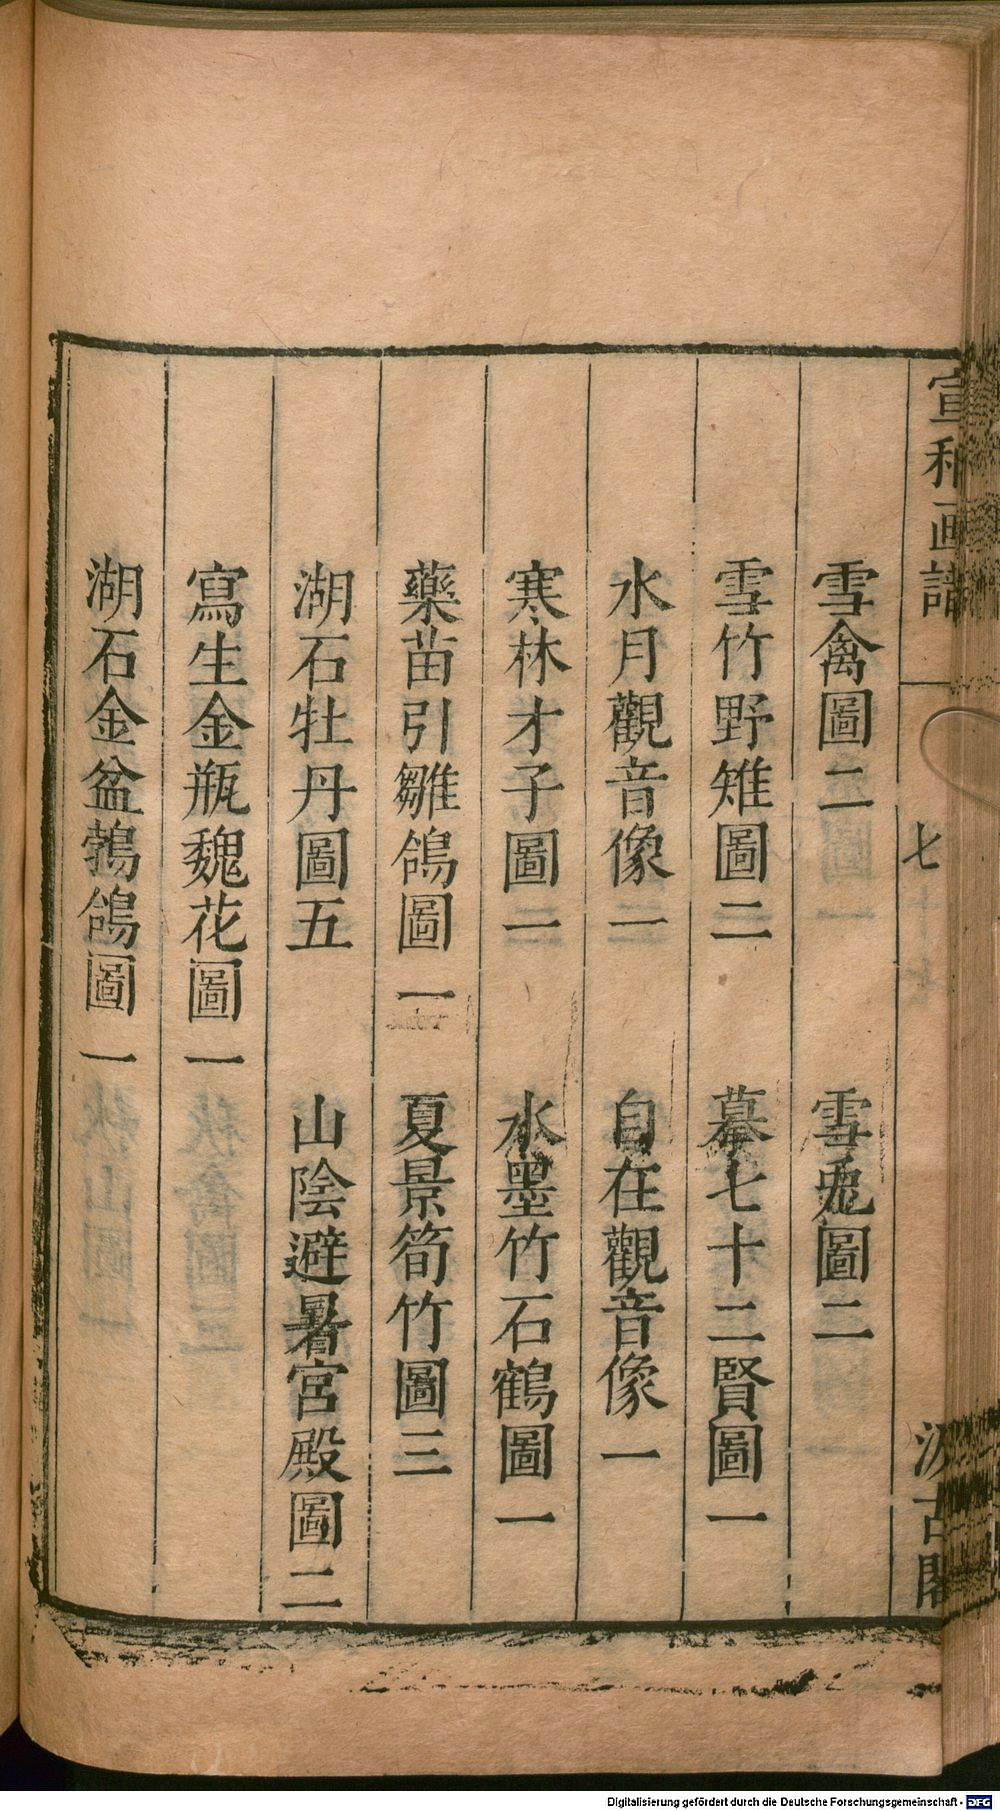 宣和画譜 七 汲古閣
雪禽圖二 雪兎圖二
雪竹野雉圖二 摹七十二賢圖一
水月觀音像一 自在觀音像一
寒林才子圖一 水墨竹石鶴圖一
藥苗引雛鴿圖一 夏景筍竹圖三
湖石牡丹圖五 山陰避暑宮殿圖二
寫生金瓶魏花圖一
湖石金盆鵓鴿圖一
Digitalisierung gefördert durch die Deutsche Forschungsgemeinschaft - DFG